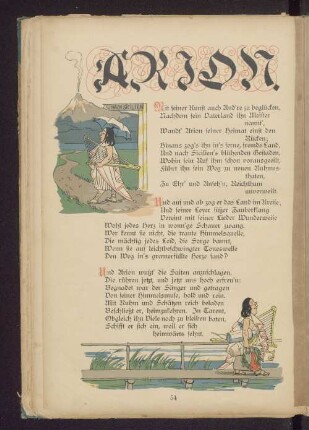 ARION.
Mit seiner Kunst auch And're zu beglücken,
Nachdem sein Vaterland ihn Meister
nannt',
Wandt' Arion seiner Heimat einst den
Rücken;
Hinaus zog's ihn in's ferne, fremde Land,
Und nach Sicilien's blühenden Gestaden,
Wohin sein Ruf ihm schon vorausgeeilt,
Führt ihn sein Weg zu neuen Ruhmes-
thaten,
Zu Ehr' und Anseh'n, Reichthum
unverweilt.
Und auf und ab zog er das Land im Kreise,
Und seiner Leyer süßer Zauberklang
Vereint mit seiner Lieder Wunderweise
Wohl jedes Herz in wonn'ge Schauer zwang.
Wer kennt sie nicht, die traute Himmelsquelle,
Die mächtig jedes Leid, die Sorge bannt,
Wenn sie auf leichtbeschwingter Toneswelle
Den Weg in's gramerfüllte Herze fand?
Und Arion wußt' die Saiten anzuschlagen,
Die rühren jetzt, und jetzt uns hoch erfreu'n:
Begnadet war der Sänger und getragen
Von seiner Himmelsmuse, hold und rein.
Mit Ruhm und Schätzen reich beladen
Beschließt er, heimzufahren. In Tarent,
Obgleich ihn Viele noch zu bleiben baten,
Schifft er sich ein, weil er sich
heimwärts sehnt.
54